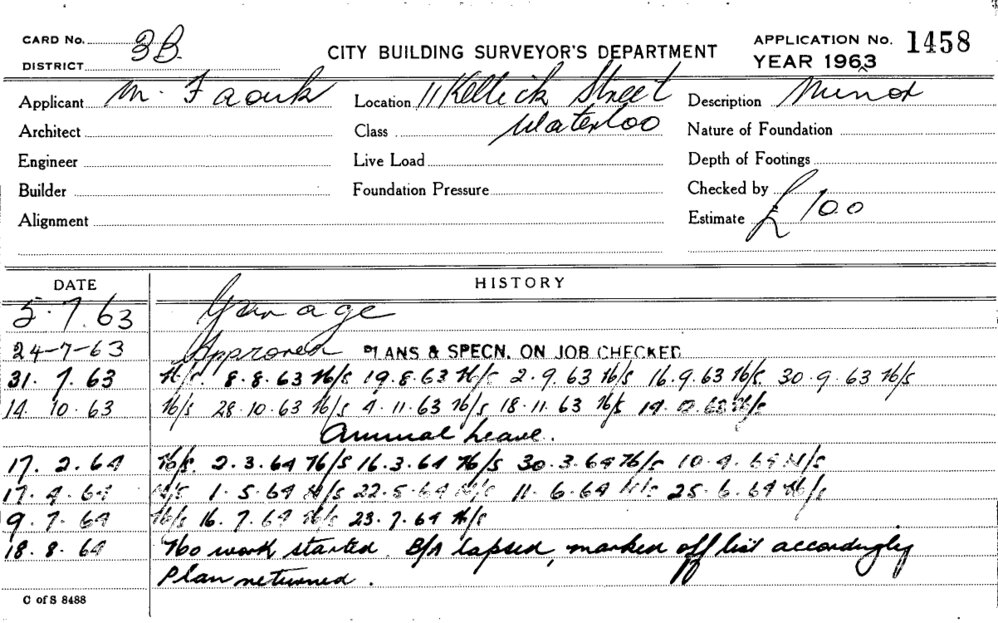 CARD No. 3B
DISTRICT
CITY BUILDING SURVEYOR'S DEPARTMENT
APPLICATION No. 1458
YEAR 1963
Applicant M. Faouk
Location 11 Kellick Street
Waterloo
Description Minor
Architect
Class
Nature of Foundation
Engineer
Live Load
Depth of Footings
Builder
Foundation Pressure
Checked by
Alignment
Estimate £100
DATE HISTORY
5.7.63 Garage
24-7-63 Approved PLANS & SPECN. ON JOB CHECKED
31.7.63 N/S. 8.8.63 N/S 19.8.63 N/S 2.9.63 N/S 16.9.63 N/S 30.9.63 N/S
14.10.63 N/S 28.10.63 N/S 4.11.63 N/S 18.11.63 N/S N/S
Annual Leave.
17.2.64 N/S. 2.3.64 N/S 16.3.64 N/S 30.3.64 N/S 10.4.64 N/S
17.4.64 N/S 1.5.64 N/S 22.5.64 N/S 11.6.64 N/S 25.6.64 N/S
9.7.64 N/S 16.7.64 N/S 23.7.64 N/S
18.8.64 No work started. B/A lapsed, marked off list accordingly
Plan returned.
C of S 8488